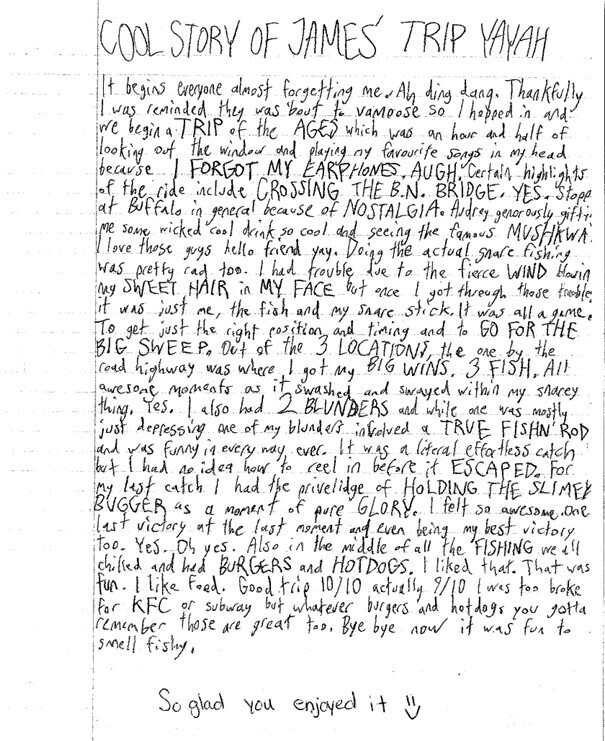 COOL STORY OF JAMES' TRIP YAYAH
It begins everyone almost forgetting me. Ah ding dang. Thankfully
I was reminded they was 'bout to vamoose so I hopped in and
we begin a TRIP of the AGES which was an hour and half of
looking out the window and playing my favourite songs in my head
because I FORGOT MY EARPHONES. AUGH. Certain highlights
of the ride include CROSSING THE B.N. BRIDGE. YES. Stopp
at Buffalo in general because of NOSTALGIA. Audrey generously giftin
me some wicked cool drink so cool and seeing the famous MUSHKWA.
I love those guys hello friend yay. Doing the actual snare fishing
was pretty rad too. I had trouble due to the fierce WIND blowin
my SWEET HAIR in MY FACE but once I got through those trouble,
it was just me, the fish and my snare stick. It was all a game.
To get just the right position and timing and to GO FOR THE
BIG SWEEP. Out of the 3 LOCATIONS, the one by the
road highway was where I got my BIG WINS. 3 FISH. All
awesome moments as it swashed and swayed within my snarey
thing. Yes. I also had 2 BLUNDERS and while one was mostly
just depressing one of my blunders involved a TRUE FISHN' ROD
and was funny in every way ever. It was a literal effortless catch
but I had no idea how to reel in before it ESCAPED. For
my last catch I had the privelidge of HOLDING THE SLIMEY
BUGGER as a moment of pure GLORY. I felt so awesome. One
last victory at the last moment and even being my best victory
too. Yes. Oh yes. Also in the middle of all the FISHING we all
chilled and had BURGERS and HOTDOGS. I liked that. That was
fun. I like food. Good trip 10/10 actually 9/10 I was too broke
for KFC or subway but whatever burgers and hotdogs you gotta
remember those are great too. Bye bye now it was fun to
smell fishy.
So glad you enjoyed it